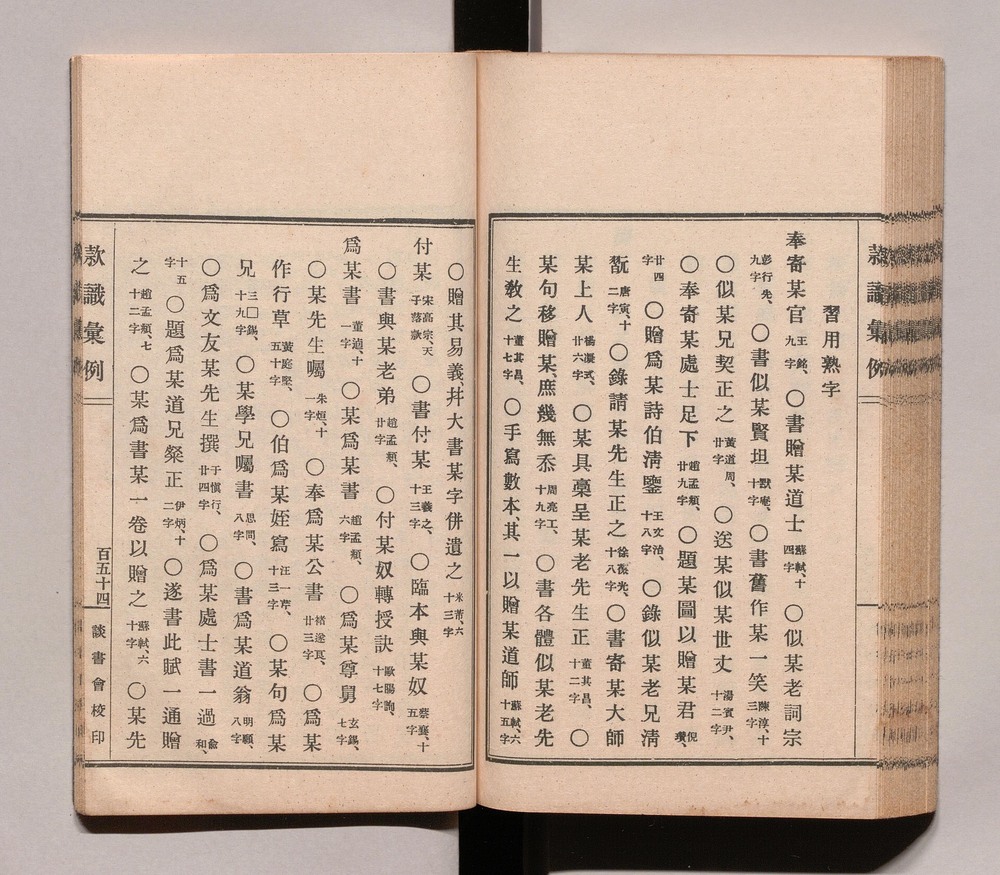 款識彙例
習用熟字
奉寄某官王銘、九字、○書贈某道士蘇軾、十四字○似某老詞宗
彭行先、九字○書似某賢坦默菴、十字、○書舊作某一笑陳淳、十三字
○似某兄契正之黃道周、廿字○送某似某世丈湯賓尹、十二字
○奉寄某處士足下趙孟頫、廿九字○題某圖以贈某君倪瓚、
廿四字○贈爲某詩伯淸鑒王文治、十八字○錄似某老兄淸
翫唐寅、十二字○錄請某先生正之徐葆光、十八字○書寄某大師
某上人楊凝式、廿六字○某具稾呈某老先生正董其昌、十二字○
某句移贈某、庶幾無忝周亮工、十九字○書各體似某老先
生敎之董其昌、十七字○手寫數本、其一以贈某道師蘇軾、六十五字
○贈其易義、幷大書某字併遺之米芾、六十三字
付某宋高宗、天子落款○書付某王羲之、十三字○臨本與某奴蔡襄、十五字
○書與某老弟趙孟頫、廿字○付某奴轉授訣歐陽詢、十七字
爲某書董逌、十一字○某爲某書趙孟頫、六字○爲某尊舅玄錫、七字
○某先生囑朱烜、十一字○奉爲某公書褚遂良、廿三字○爲某
作行草黃庭堅、五十字○伯爲某姪寫汪一芹、十三字○某句爲某
兄三□錫、十九字○某學兄囑書思問、八字○書爲某道翁明願、八字
○爲文友某先生撰于愼行、廿四字○爲某處士書一過兪和、
十五字○題爲某道兄粲正伊炳、十二字○遂書此賦一通贈
之趙孟頫、七十二字○某爲書某一卷以贈之蘇軾、六十字○某先
款識彙例
百五十四
談書會校印